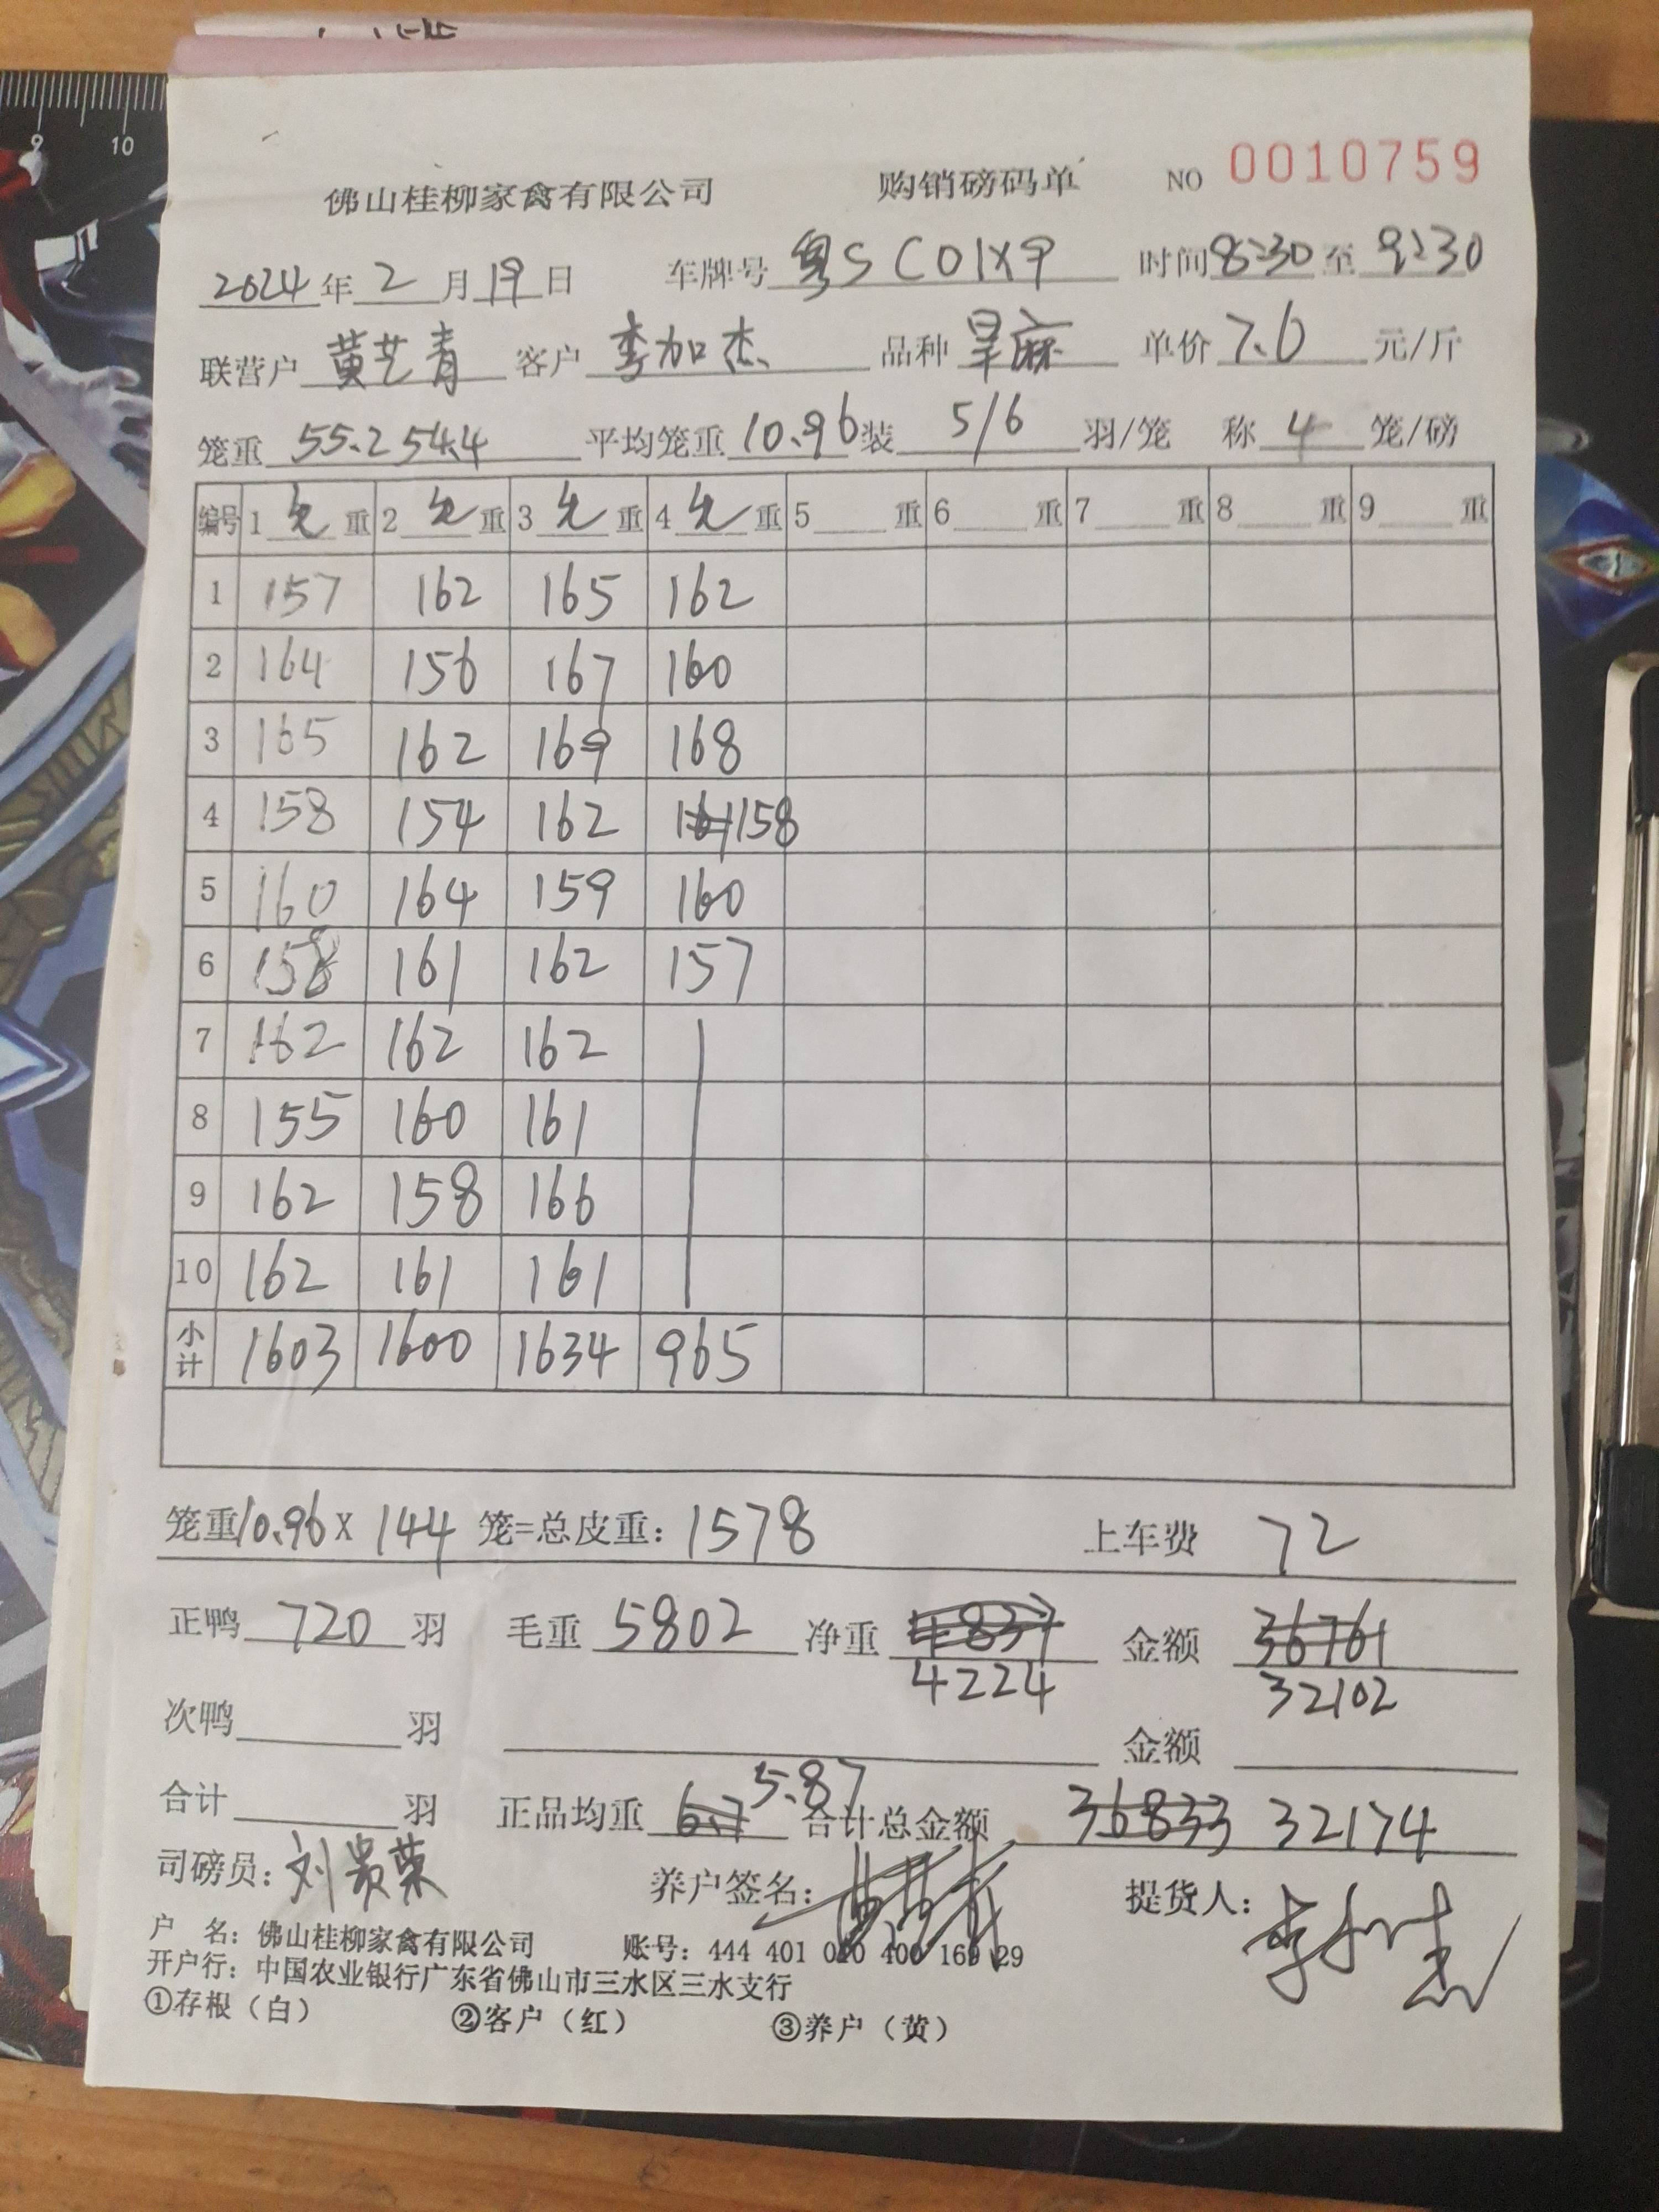 佛山桂柳家禽有限公司 购销磅码单 NO 0010759
2024年2月19日 车牌号 粤SC01X9 时间8:30至9:30
联营户 黄艺青 客户 李加杰 品种 旱麻 单价7.6元/斤
笼重 55.2 54.4 平均笼重10.96装 5/6 羽/笼 称 4 笼/磅
编号 1 毛 重 2 毛 重 3 毛 重 4 毛 重 5 重 6 重 7 重 8 重 9 重
1 157 162 165 162
2 164 156 167 160
3 165 162 169 168
4 158 154 162 161 158
5 160 164 159 160
6 158 161 162 157
7 162 162 162
8 155 160 161
9 162 158 166
10 162 161 161
小计 1603 1600 1634 965
笼重10.96 X 144 笼=总皮重: 1578 上车费 72
正鸭 720 羽 毛重 5802 净重 4837 金额 36761
4224 32102
次鸭 羽 金额
合计 羽 正品均重 6.7 5.87 合计总金额 36833 32174
司磅员: 刘贵荣 养户签名: 提货人: 李加杰
户 名: 佛山桂柳家禽有限公司 账号: 444 401 010 400 169 29
开户行: 中国农业银行广东省佛山市三水区三水支行
①存根（白） ②客户（红） ③养户（黄）